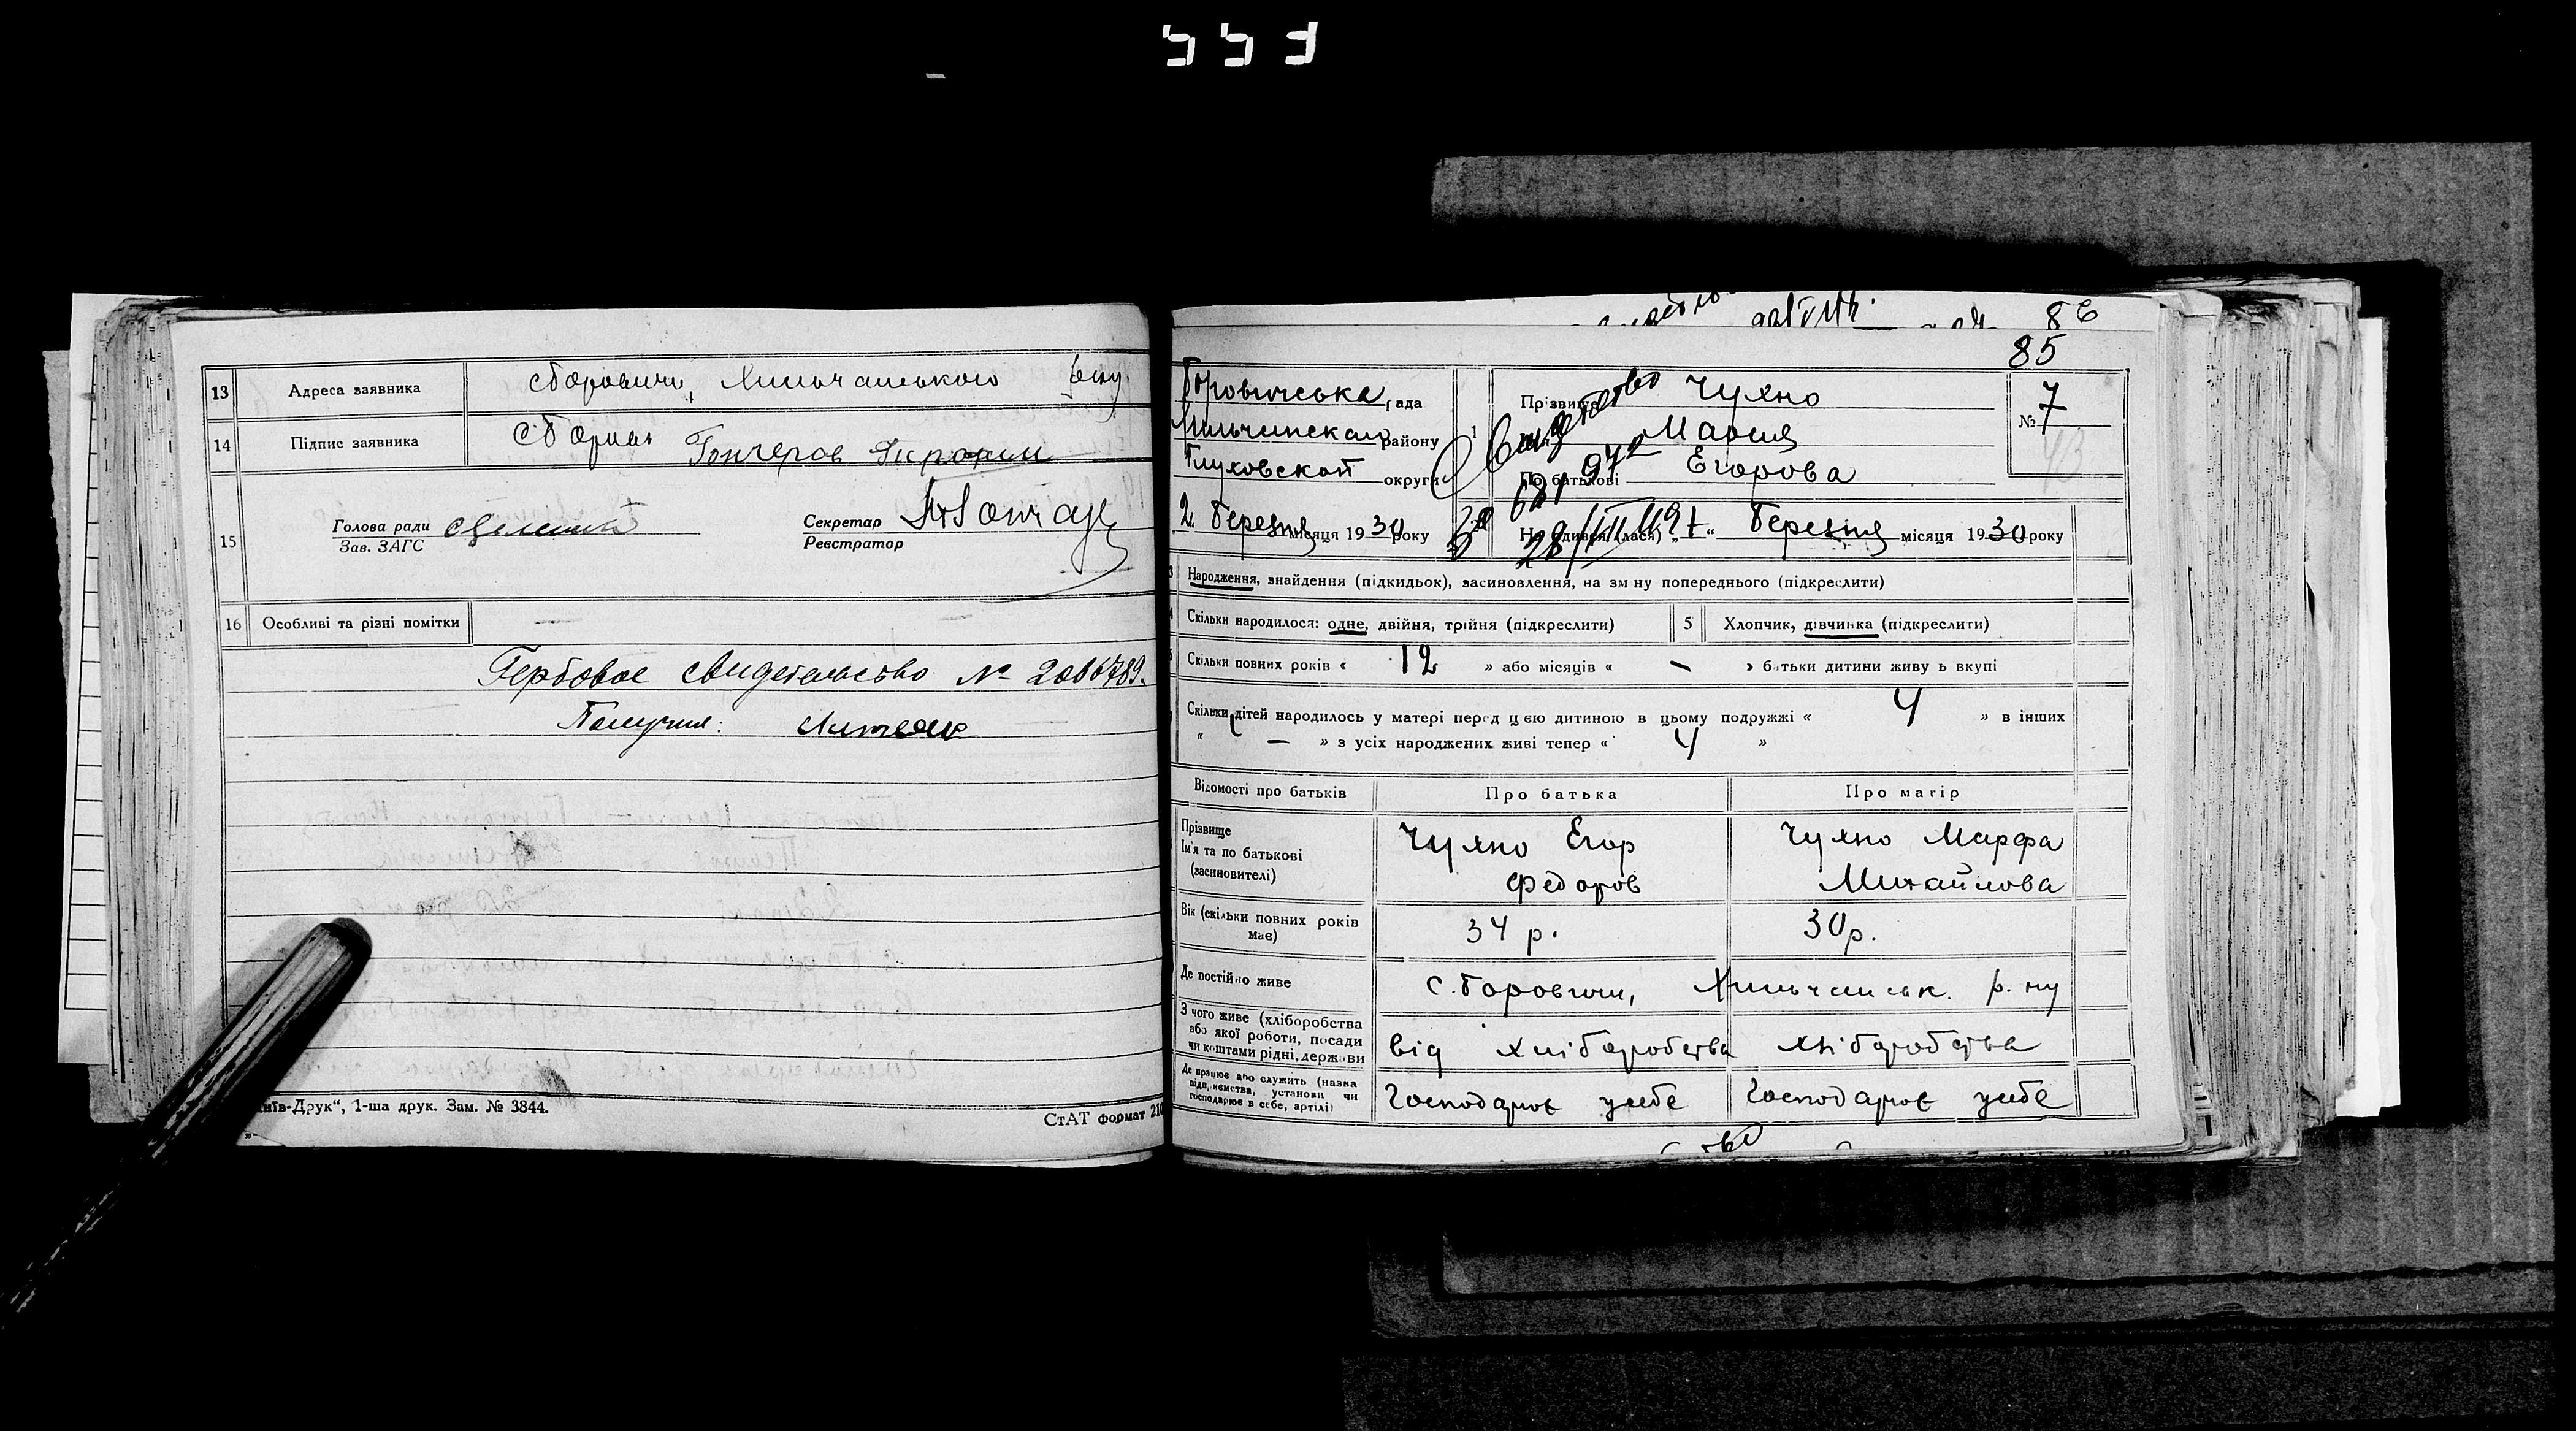 13 Адреса заявника с Боровичи, Хильчанського
14 Підпис заявника Гончеров
15 Голова ради
Зав. ЗАГС
Секретар
Реєстратор
16 Особливі та різні помітки —
Гербовое свидетельство № 2086789.
Получил:
Київ-Друк“, 1-ша друк. Зам. № 3844.
СтАТ формат 210
86
85
рада
району
Глуховской округи
2 Березня місяця 1930 року
1 Прізвище Чухно
Мария
По батькові Егорова
№ 7
43
Свидетельство
972
„1“ Березня місяця 1930 року
3 Народження, знайдення (підкидьок), засиновлення, на зміну попереднього (підкреслити)
4 Скільки народилося: одне, двійня, трійня (підкреслити) 5 Хлопчик, дівчинка (підкреслити)
6 Скільки повних років « 12 » або місяців « — » батьки дитини живуть вкупі
Скільки дітей народилось у матері перед цією дитиною в цьому подружжі « 4 » в інших
« — » з усіх народжених живі тепер « 4 »
Відомості про батьків Про батька Про матір
Прізвище
Ім'я та по батькові
(засиновителі)
Чухно Егор
Федоров
Чухно Марфа
Михайлова
Вік (скільки повних років
має)
34 р. 30 р.
Де постійно живе с. Боровичи, Хильчанськ. р. ну
З чого живе (хліборобства
або якої роботи, посади
чи коштами рідні, держави
від хліборобства хліборобства
Де працює або служить (назва
підприємства, установи чи
господарює в себе, артілі)
Господарює у себе Господарює у себе